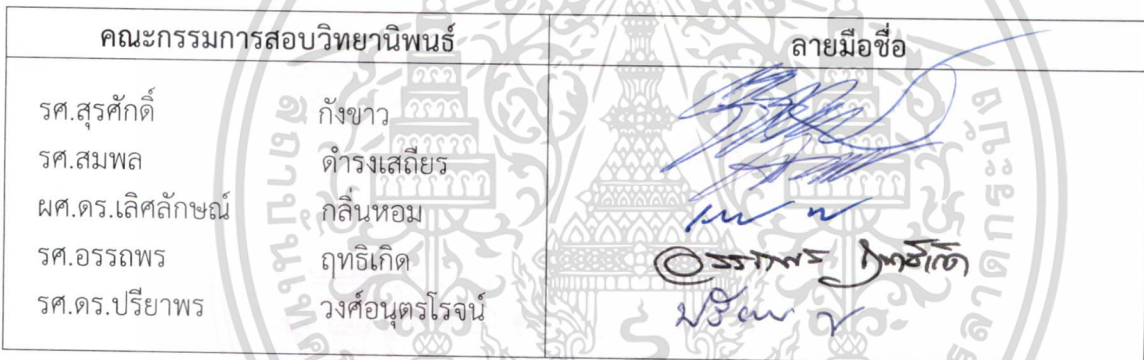 คณะกรรมการสอบวิทยานิพนธ์ ลายมือชื่อ
รศ.สุรศักดิ์ กังขาว
รศ.สมพล ดำรงเสถียร
ผศ.ดร.เลิศลักษณ์ กลิ่นหอม
รศ.อรรถพร ฤทธิเกิด อรรถพร ฤทธิเกิด
รศ.ดร.ปรียาพร วงศ์อนุตรโรจน์